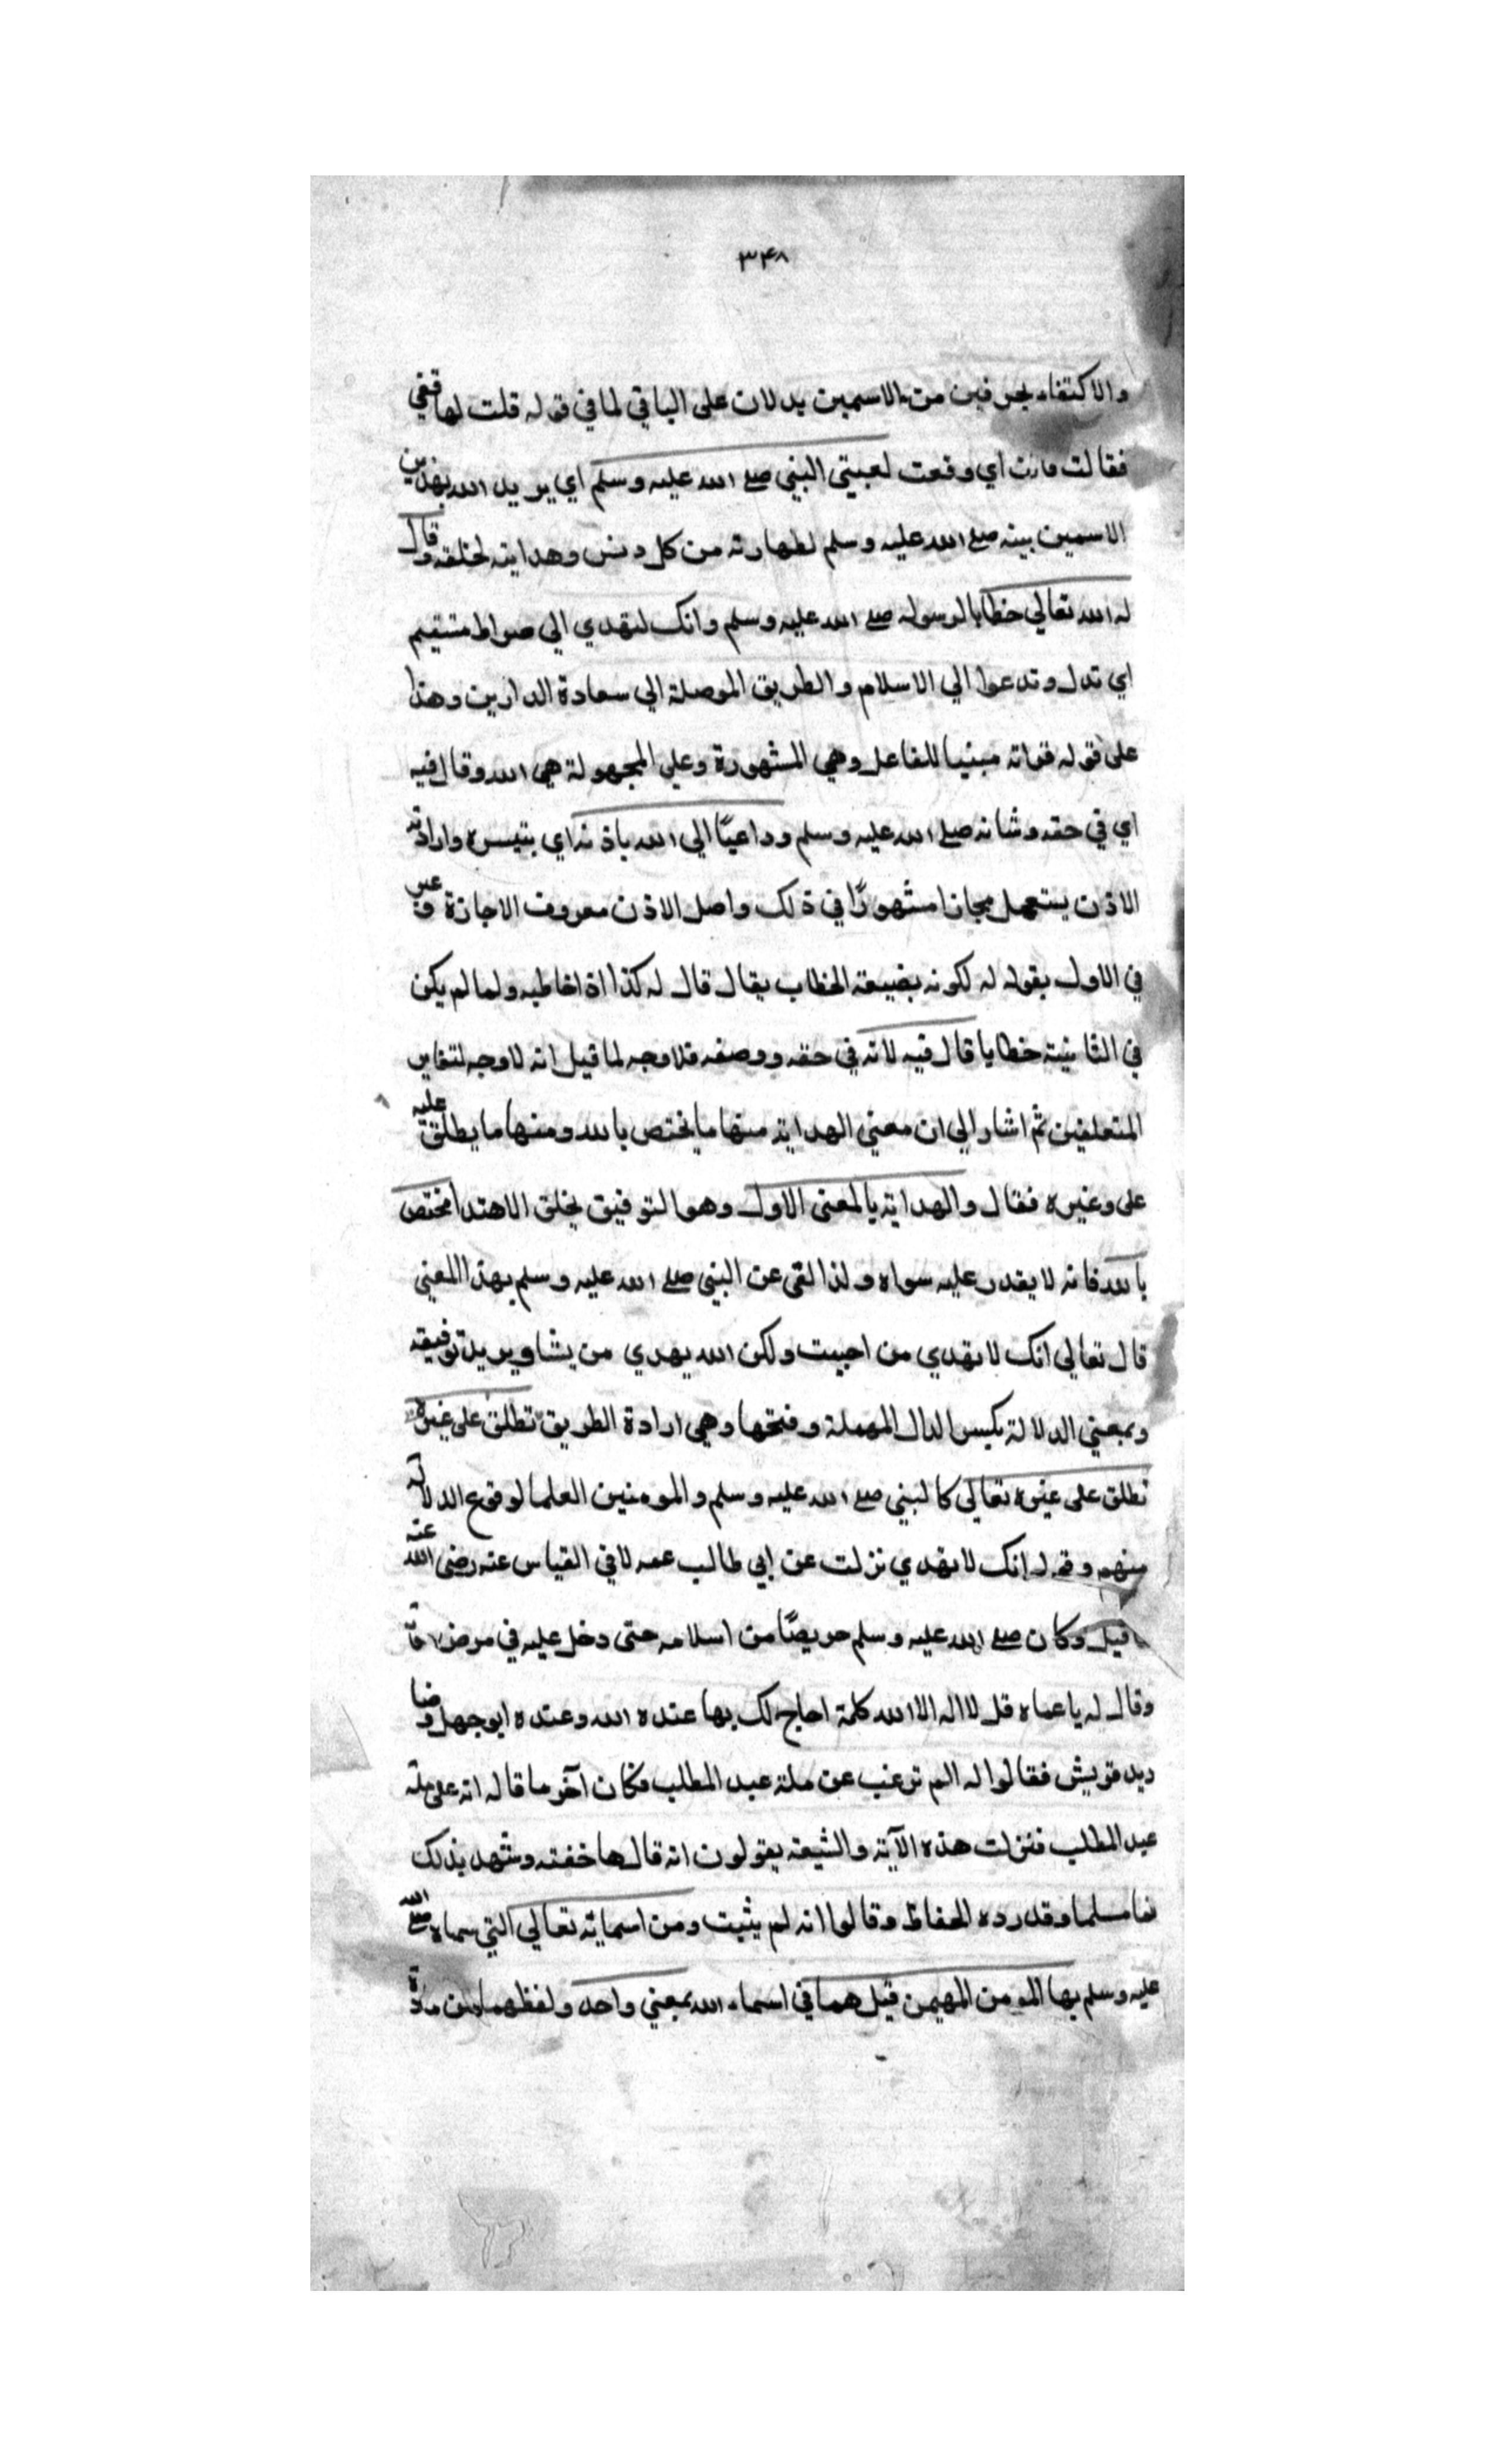 ٣٤٨
والاكتفاء بحرفين من الاسمين يدلان على الباقي لما في قوله قلت لها قفي
فقالت قاف اي وقعت لعيني النبي صلے الله عليه وسلم اي يريد الله بهذين
الاسمين بينه صلے الله عليه وسلم لطهارته من كل دنس وهدايته لخلقه وقال
له الله تعالي خطابا لرسوله صلے الله عليه وسلم وانك لتهدي الي صراط مستقيم
اي تدل وتدعوا الي الاسلام والطريق الموصلة الي سعادة الدارين وهذا
على قوله قراته مبنيا للفاعل وهي المشهورة وعلي المجهولة هي الله وقال فيه
اي في حقه وشانه صلے الله عليه وسلم وداعيًا الي الله باذنه اي بتيسره وارادته
الاذن يستعمل مجازا مشهورًا في ذلك واصل الاذن معروف الاجازة وعبر
في الاول بقوله له لكونه بصيغة الخطاب يقال قال له كذا اذا خاطبه ولما لم يكن
في الثانية خطابا قال فيه لانه في حقه ووصفه فلا وجه لما قيل انه لا وجه لتغاير
المتعلقين ثم اشار الي ان معني الهداية منها ما يختص بالله ومنها ما يطلق عليه
على وغيره فقال والهداية بالمعنى الاول وهو التوفيق بخلق الاهتدا مختص
بالله فانه لا يقدر عليه سواه ولذا لقي عن النبي صلے الله عليه وسلم بهذا المعني
قال تعالي انك لا تهدي من احببت ولكن الله يهدي من يشا ويريد توفيقه
وبمعني الدلالة بكسر الدال المهملة وفتحها وهي ارادة الطريق تطلق على غيره
تطلق على غيره تعالي كالنبي صلے الله عليه وسلم والمومنين العلما لوقوع الدلالة
منهم وقوله انك لا تهدي نزلت عن ابي طالب عمه لا في القياس عنه رضي الله عنه
قيل وكان صلے الله عليه وسلم حريصًا من اسلامه حتى دخل عليه في مرض
وقال له يا عماه قل لا اله الا الله كلمة احاج لك بها عنده الله وعنده ابوجهل وصنا
ديد قريش فقالوا له الم ترغب عن ملة عبد المطلب فكان آخر ما قاله انه على ملة
عبد المطلب فنزلت هذه الآية والشيعة يقولون انه قالها خفته وشهد بذلك
فمات مسلما وقد رده الحفاظ وقالوا انه لم يثبت ومن اسمائه تعالي التي سماه صلے الله
عليه وسلم بها المومن المهيمن قيل هما في اسماء الله بمعني واحد ولفظهما من مادة